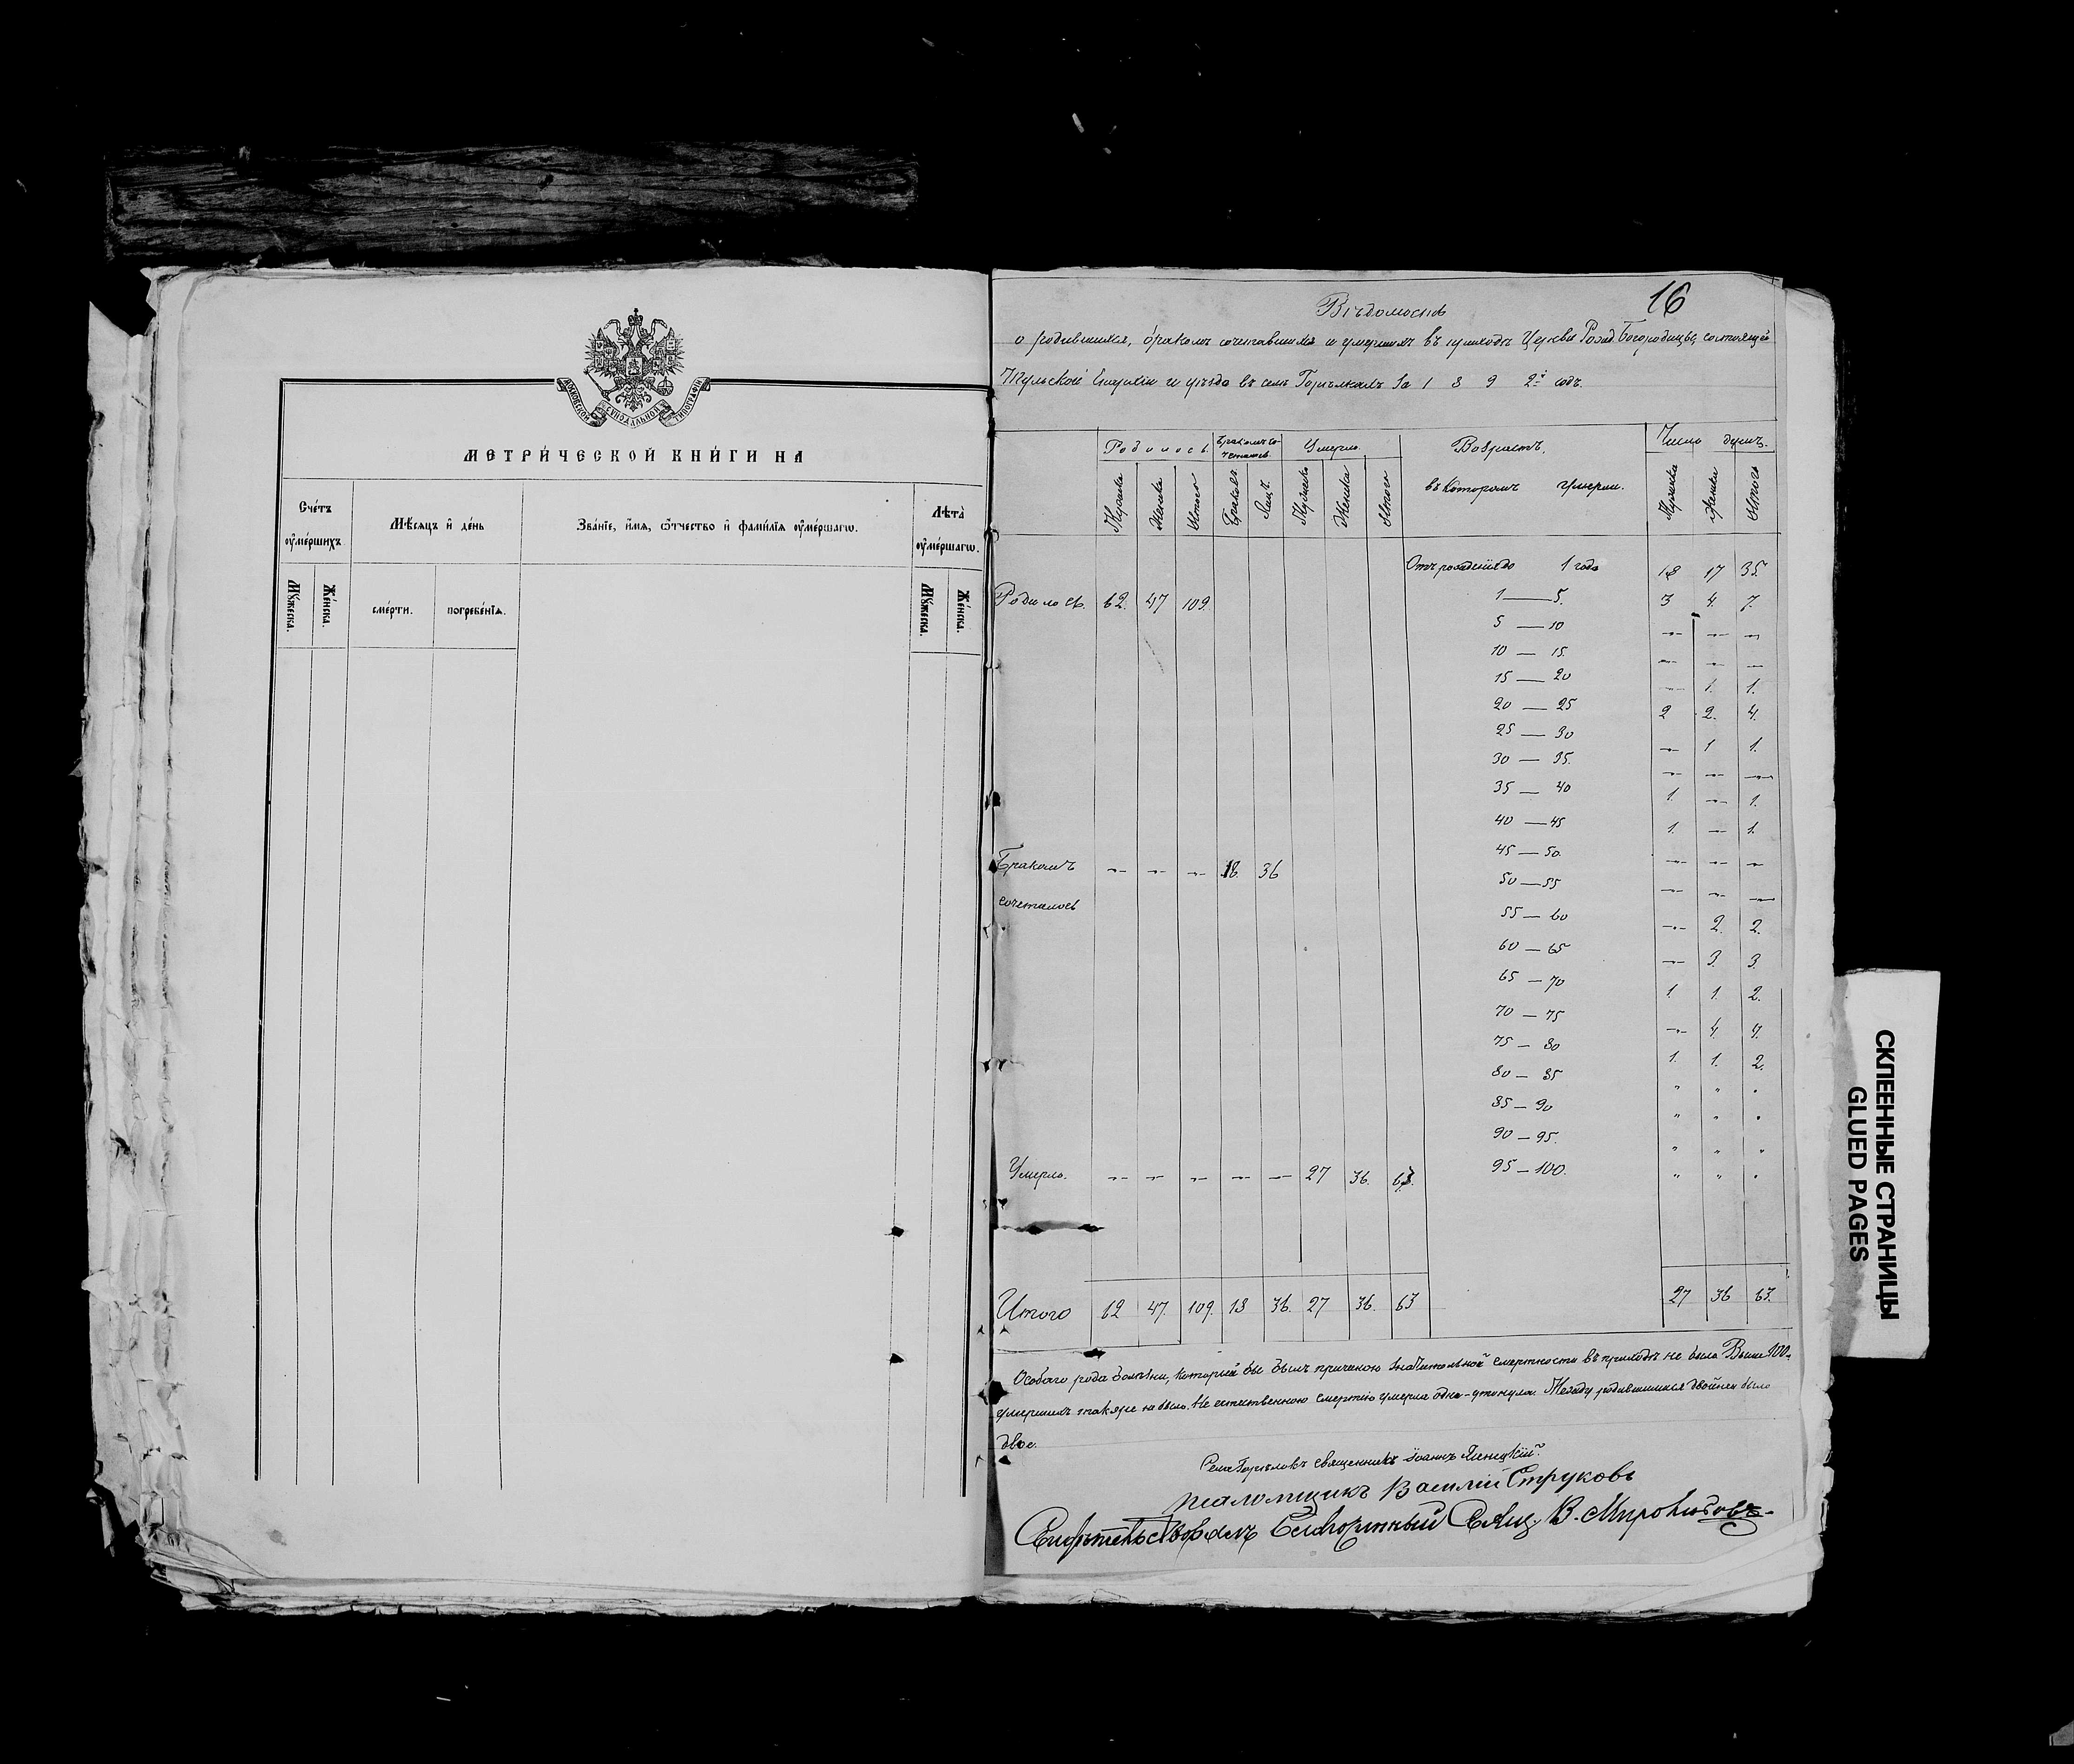 МОСКОВСКОЙ СѴНОДАЛЬНОЙ ТИПОГРАФІИ
МЕТРИ́ЧЕСКОЙ КНИ́ГИ НА
Сче́тъ оу҆ме́ршихъ.
Мѣ́сяцъ и҆ де́нь
Зва́нїе, и҆́мя, ѻ҆́тчество и҆ фами́лїя оу҆ме́ршагѡ.
Лѣ́та оу҆ме́ршагѡ.
Мꙋ́жеска.
Же́нска.
сме́рти.
погребе́нїѧ.
Мꙋ́жеска.
Же́нска.
16
Вѣдомость
о родившихся, бракомъ сочетавшихся и умершихъ въ приходѣ Церкви Рожд. Богородицы, состоящей
Тульской Епархіи и уѣзда въ селѣ Горѣлкахъ за 1 8 9 2й годъ.
Родилось. Бракомъ сочеталось. Умерло. Возрастъ, Число душъ.
въ которомъ умерли.
Мужска Женска Итого Браковъ Лицъ. Мужска Женска Итого Мужска Женска Итого
Отъ рожденія до 1 года 18 17 35.
Родилось. 62. 47 109.
1 — 5. 3 4. 7.
5 — 10 — — —
10 — 15. — — —
15 — 20 — 1. 1.
20 — 25 2 2. 4.
25 — 30 — 1 1.
30 — 35. — — —
35 — 40 1. — 1.
40 — 45 1. — 1.
45 — 50. — — —
Бракомъ — — — 18. 36
сочеталось
50 — 55 — — —
55 — 60 — 2. 2.
60 — 65 — 3. 3.
65 — 70 1. 1. 2.
70 — 75 — 4. 4.
75 — 80 1. 1. 2.
80 — 85 " " "
85 — 90 " " "
90 — 95. " " "
95 — 100. " " "
Умерло. — — — — — 27 36. 63.
Итого 62 47. 109. 18 36. 27 36. 63 27 36 63.
Особаго рода болѣзни, который бы былъ причиною значительной смертности въ приходѣ не было. Выше 100
умершихъ также не было. Не естественною смертію умерла одна - утонула. Между родившимися двойней было
двое.
Села Горѣлокъ священникъ Іоаннъ
псаломщикъ Василій Струковъ
Свидѣтельствовалъ Свящ. В. Мироносовъ
СКЛЕЕННЫЕ СТРАНИЦЫ
GLUED PAGES